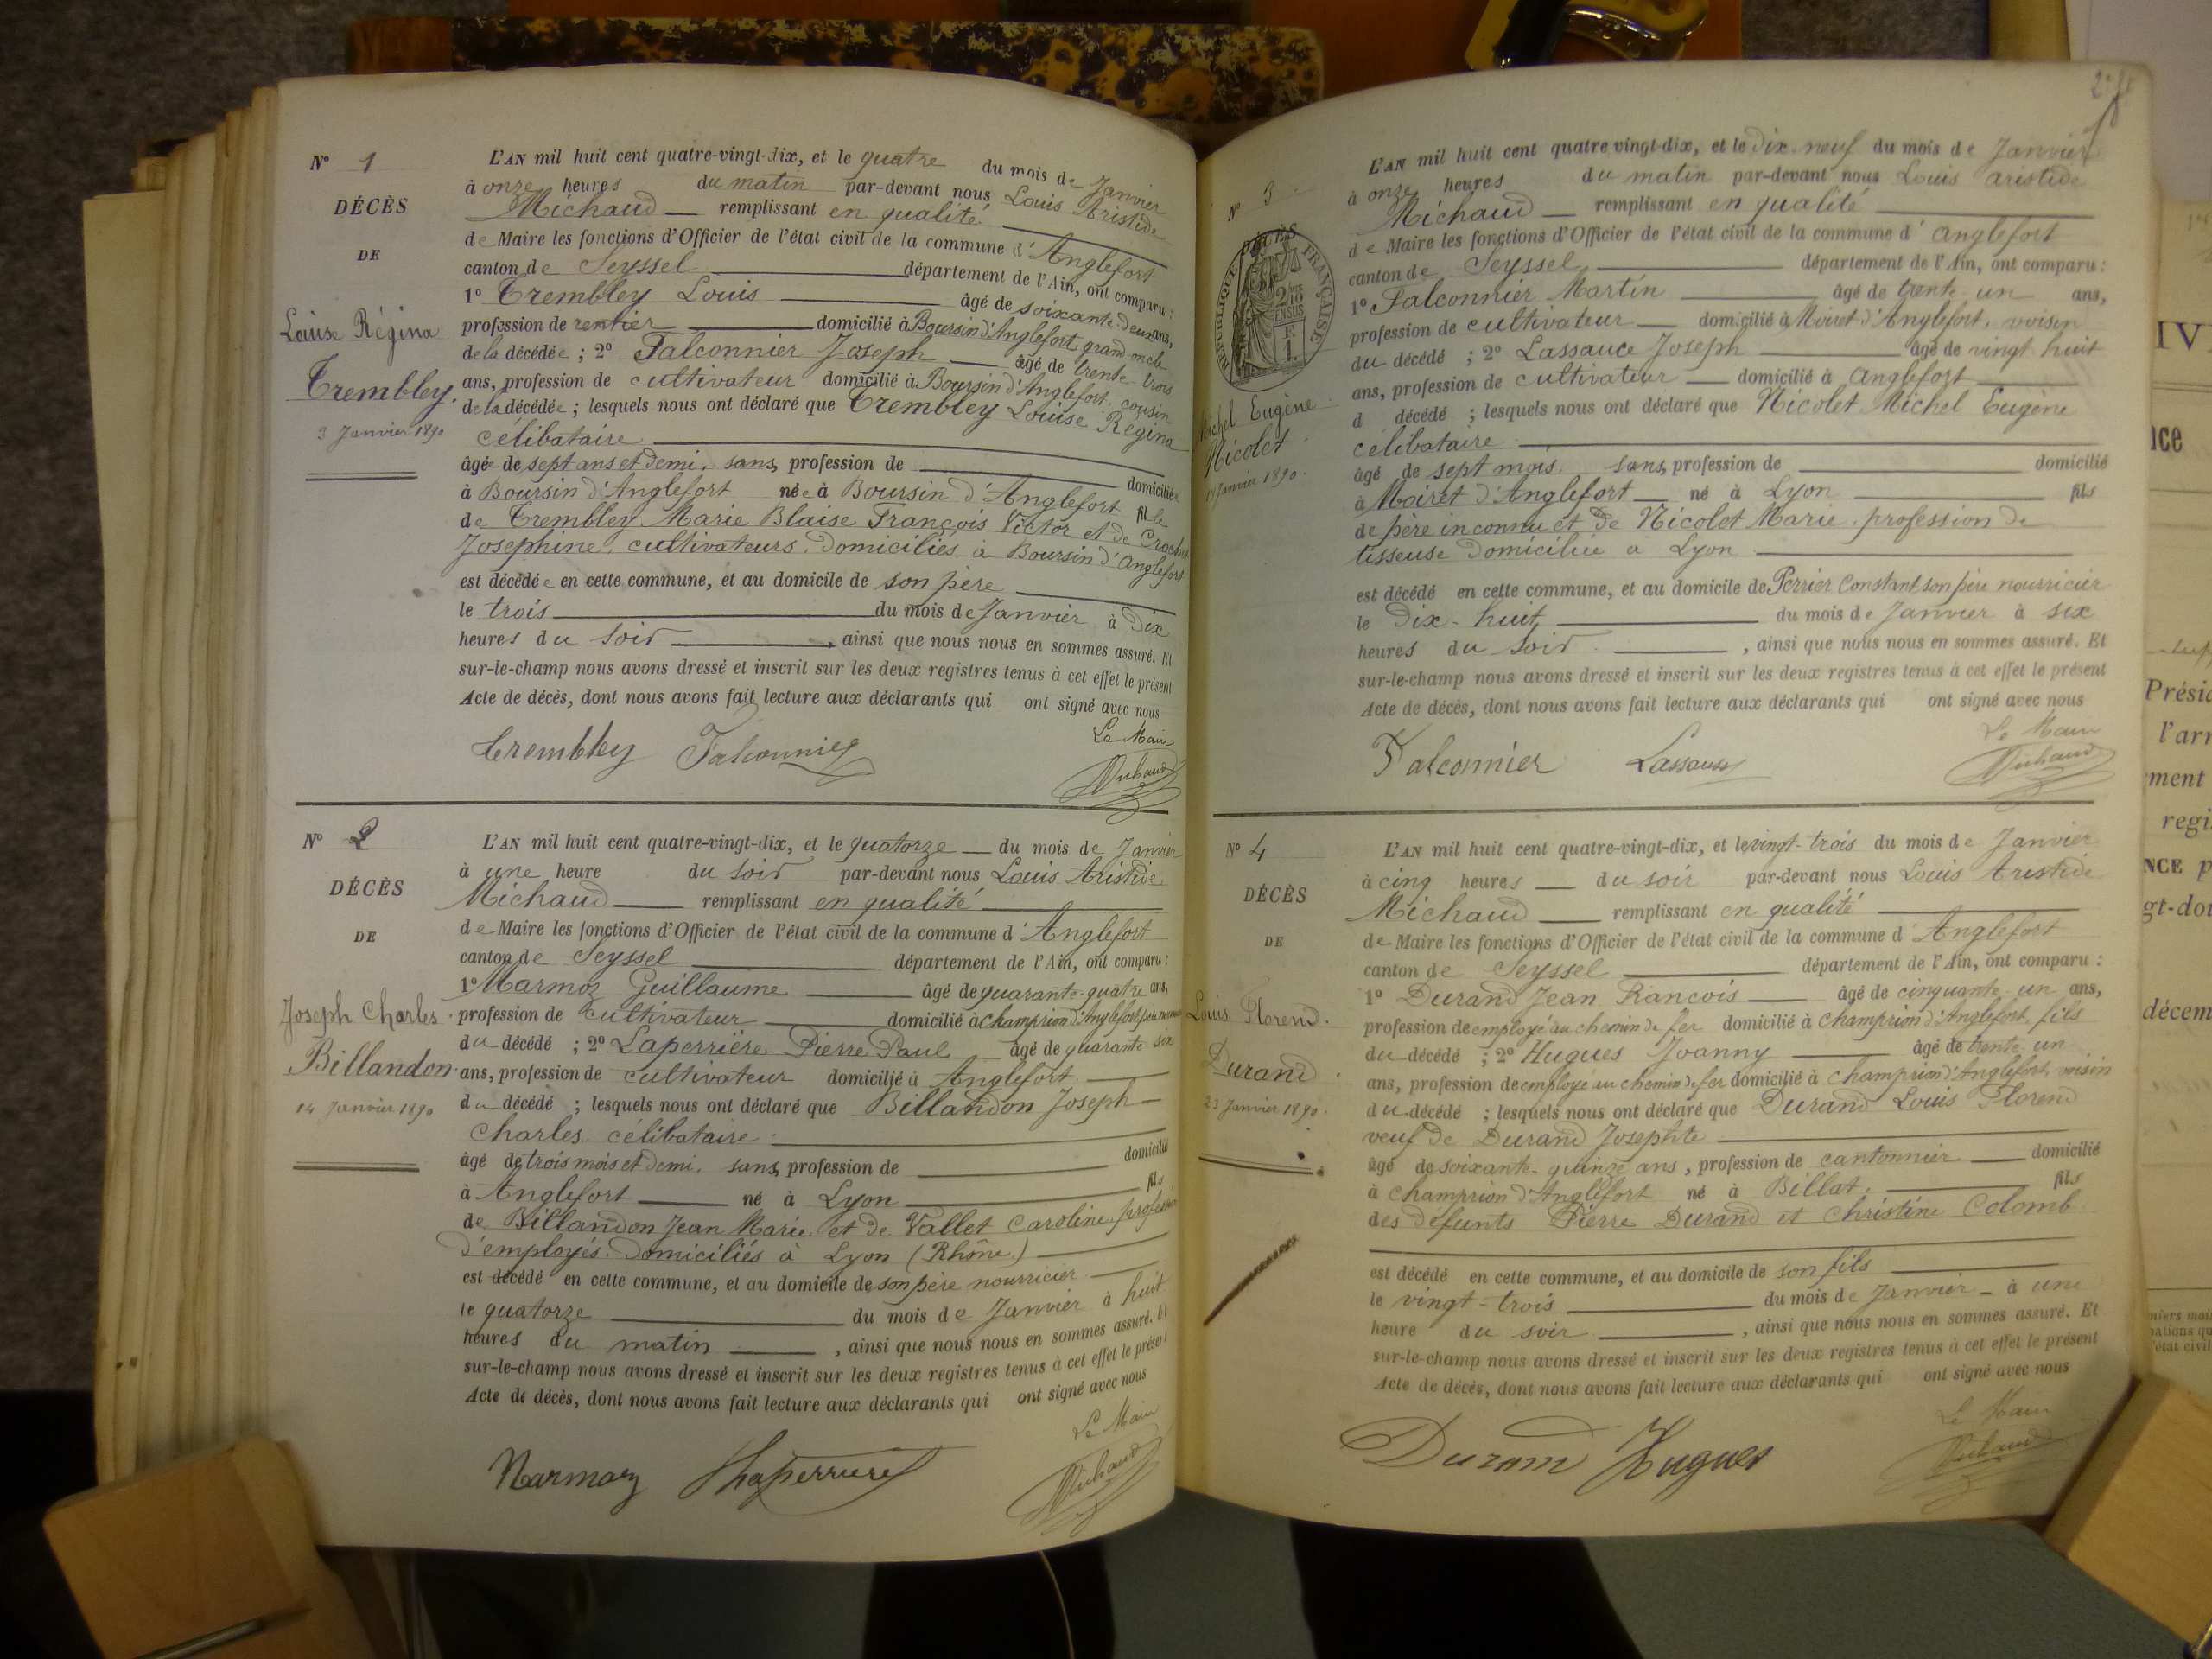 N° 1
DÉCÈS
DE
Louise Régina
Trembley.
3 Janvier 1890
L'AN mil huit cent quatre-vingt-dix, et le quatre du mois de Janvier
à onze heures du matin par-devant nous Louis Aristide
Michaud remplissant en qualité
de Maire les fonctions d'Officier de l'état civil de la commune d'Anglefort
canton de Seyssel département de l'Ain, ont comparu :
1° Trembley Louis âgé de soixante-deux ans,
profession de rentier domicilié à Boursin d'Anglefort, grand
de la décédée ; 2° Falconnier Joseph âgé de trente trois
ans, profession de cultivateur domicilié à Boursin d'Anglefort, cousin
de la décédée ; lesquels nous ont déclaré que Trembley Louise Régina
célibataire
âgée de sept ans et demi, sans profession de domiciliée
à Boursin d'Anglefort née à Boursin d'Anglefort fille
de Trembley Marie Blaise François Victor et de
Josephine, cultivateurs, domiciliés à Boursin d'Anglefort
est décédée en cette commune, et au domicile de son père
le trois du mois de Janvier à dix
heures du soir, ainsi que nous nous en sommes assuré. Et
sur-le-champ nous avons dressé et inscrit sur les deux registres tenus à cet effet le présent
Acte de décès, dont nous avons fait lecture aux déclarants qui ont signé avec nous
Le Maire
Trembley Falconnier Michaud
N° 2
DÉCÈS
DE
Joseph Charles
Billandon
14 Janvier 1890
L'AN mil huit cent quatre-vingt-dix, et le quatorze du mois de Janvier
à une heure du soir par-devant nous Louis Aristide
Michaud remplissant en qualité
de Maire les fonctions d'Officier de l'état civil de la commune d'Anglefort
canton de Seyssel département de l'Ain, ont comparu :
1° Marmoz Guillaume âgé de quarante-quatre ans,
profession de cultivateur domicilié à Champrion d'Anglefort, père
du décédé ; 2° Laperrière Pierre Paul âgé de quarante-six
ans, profession de cultivateur domicilié à Anglefort
du décédé ; lesquels nous ont déclaré que Billandon Joseph
Charles célibataire
âgé de trois mois et demi, sans profession de domicilié
à Anglefort né à Lyon fils
de Billandon Jean Marie et de Vallet Caroline, profession
d'employés, domiciliés à Lyon (Rhône)
est décédé en cette commune, et au domicile de son père nourricier
le quatorze du mois de Janvier à huit
heures du matin, ainsi que nous nous en sommes assuré. Et
sur-le-champ nous avons dressé et inscrit sur les deux registres tenus à cet effet le présent
Acte de décès, dont nous avons fait lecture aux déclarants qui ont signé avec nous
Le Maire
Marmoz Laperriere Michaud
N° 3
DÉCÈS
RÉPUBLIQUE FRANÇAISE
Michel Eugène
Nicolet
18 Janvier 1890
L'AN mil huit cent quatre vingt-dix, et le dix-neuf du mois de Janvier
à onze heures du matin par-devant nous Louis aristide
Michaud remplissant en qualité
de Maire les fonctions d'Officier de l'état civil de la commune d'anglefort
canton de Seyssel département de l'Ain, ont comparu :
1° Falconnier Martin âgé de trente-un ans,
profession de cultivateur domicilié à Moiret d'Anglefort, voisin
du décédé ; 2° Lassauce Joseph âgé de vingt huit
ans, profession de cultivateur domicilié à anglefort
d décédé ; lesquels nous ont déclaré que Nicolet Michel Eugène
célibataire
âgé de sept mois, sans profession de domicilié
à Moiret d'Anglefort né à Lyon fils
de père inconnu et de Nicolet Marie, profession de
tisseuse domiciliée à Lyon
est décédé en cette commune, et au domicile de Perrier Constant son père nourricier
le dix-huit du mois de Janvier à six
heures du soir, ainsi que nous nous en sommes assuré. Et
sur-le-champ nous avons dressé et inscrit sur les deux registres tenus à cet effet le présent
Acte de décès, dont nous avons fait lecture aux déclarants qui ont signé avec nous
Le Maire
Falconnier Lassauce Michaud
N° 4
DÉCÈS
DE
Louis Florend
Durand
23 Janvier 1890
L'AN mil huit cent quatre-vingt-dix, et le vingt-trois du mois de Janvier
à cinq heures du soir par-devant nous Louis Aristide
Michaud remplissant en qualité
de Maire les fonctions d'Officier de l'état civil de la commune d'Anglefort
canton de Seyssel département de l'Ain, ont comparu :
1° Durand Jean Francois âgé de cinquante-un ans,
profession de employé au chemin de fer domicilié à Champrion d'Anglefort, fils
du décédé ; 2° Hugues Joanny âgé de trente-un
ans, profession de employé au chemin de fer domicilié à Champrion d'Anglefort, voisin
du décédé ; lesquels nous ont déclaré que Durand Louis Florend
veuf de Durand Josephte
âgé de soixante-quinze ans, profession de cantonnier domicilié
à Champrion d'Anglefort né à Billat fils
des défunts Pierre Durand et Christine Colomb
est décédé en cette commune, et au domicile de son fils
le vingt-trois du mois de Janvier à une
heure du soir, ainsi que nous nous en sommes assuré. Et
sur-le-champ nous avons dressé et inscrit sur les deux registres tenus à cet effet le présent
Acte de décès, dont nous avons fait lecture aux déclarants qui ont signé avec nous
Le Maire
Durand Hugues Michaud